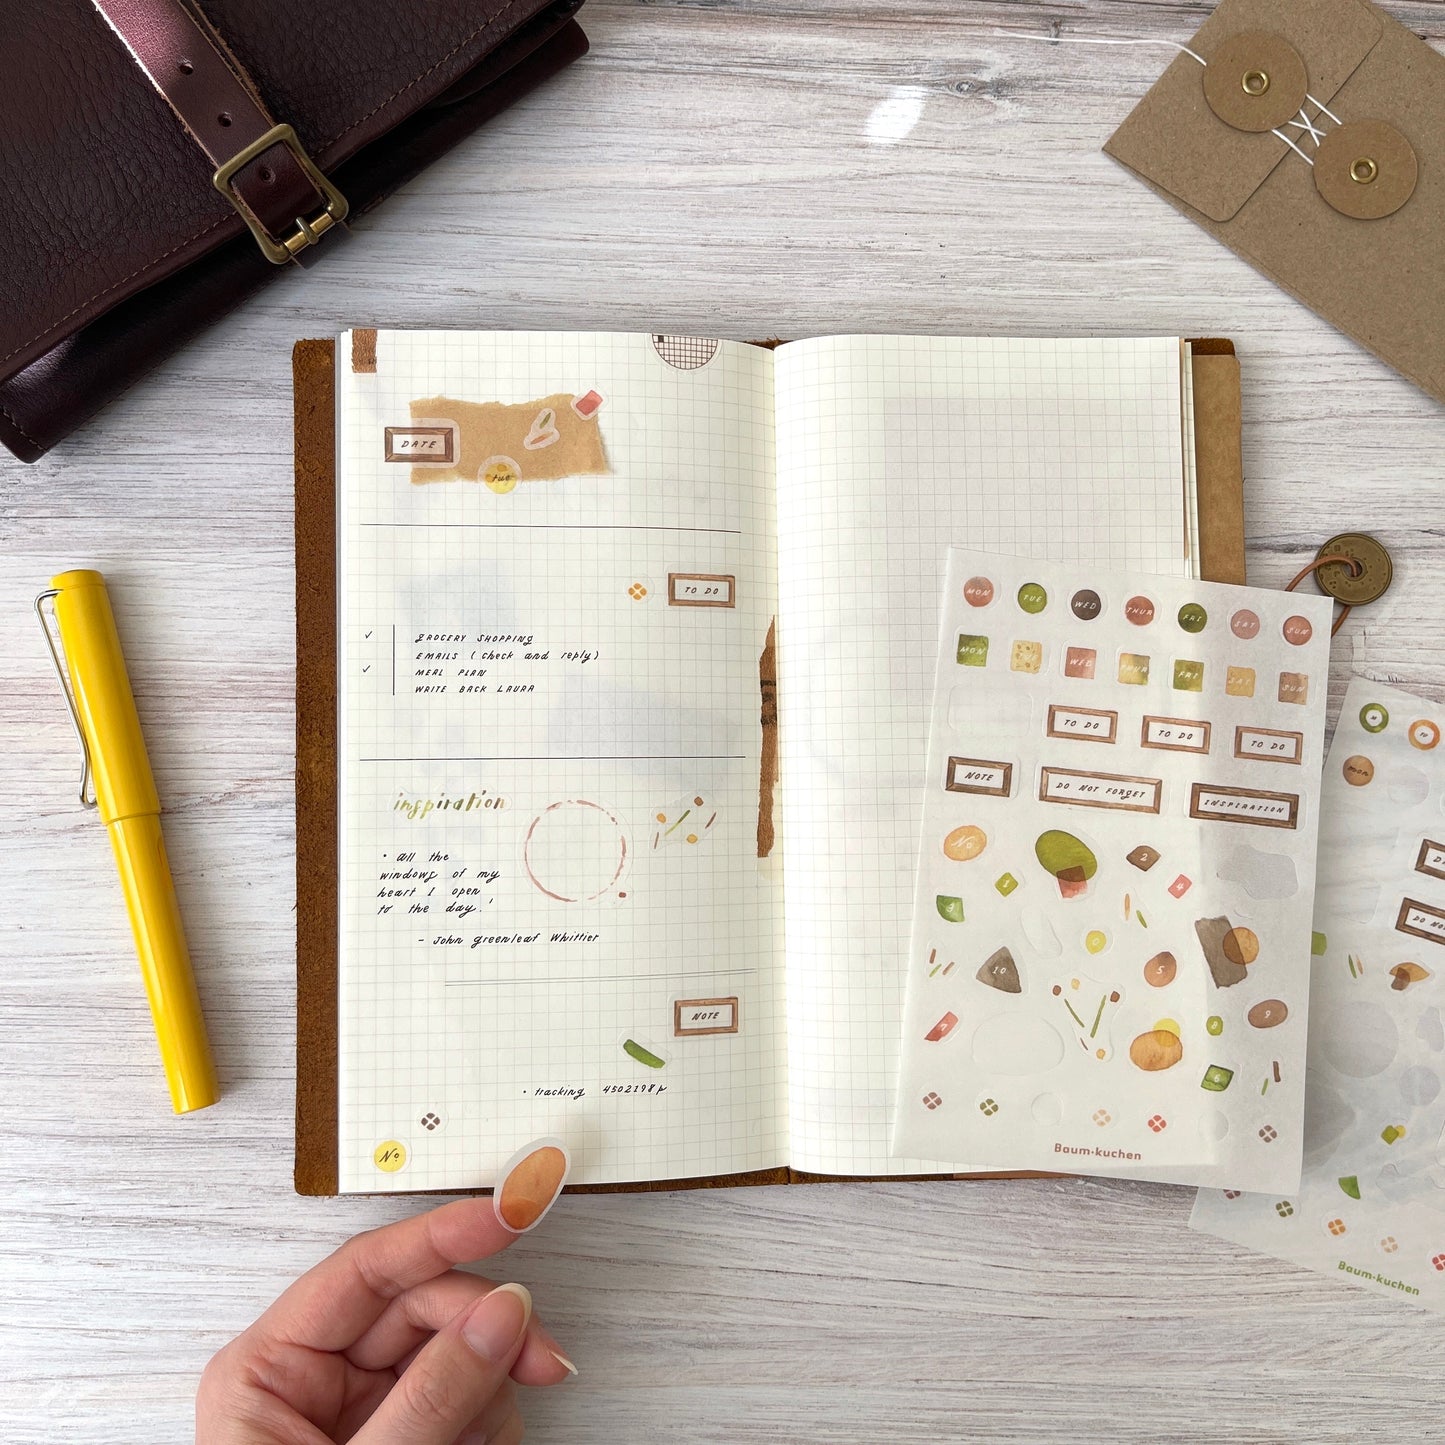 DATE
tue
TO DO
GROCERY SHOPPING
EMAILS (check and reply)
MEAL PLAN
WRITE BACK LAURA
inspiration
· all the
windows of my
heart I open
to the day.'
- John Greenleaf Whittier
NOTE
· tracking 4502198p
No
MON TUE WED THUR FRI SAT SUN
MON TUE WED THUR FRI SAT SUN
TO DO TO DO TO DO
NOTE DO NOT FORGET INSPIRATION
No 2
1 4
3
0
10 5
7 8 9
6
Baum·kuchen
mon
DO NO
Baum·kuchen